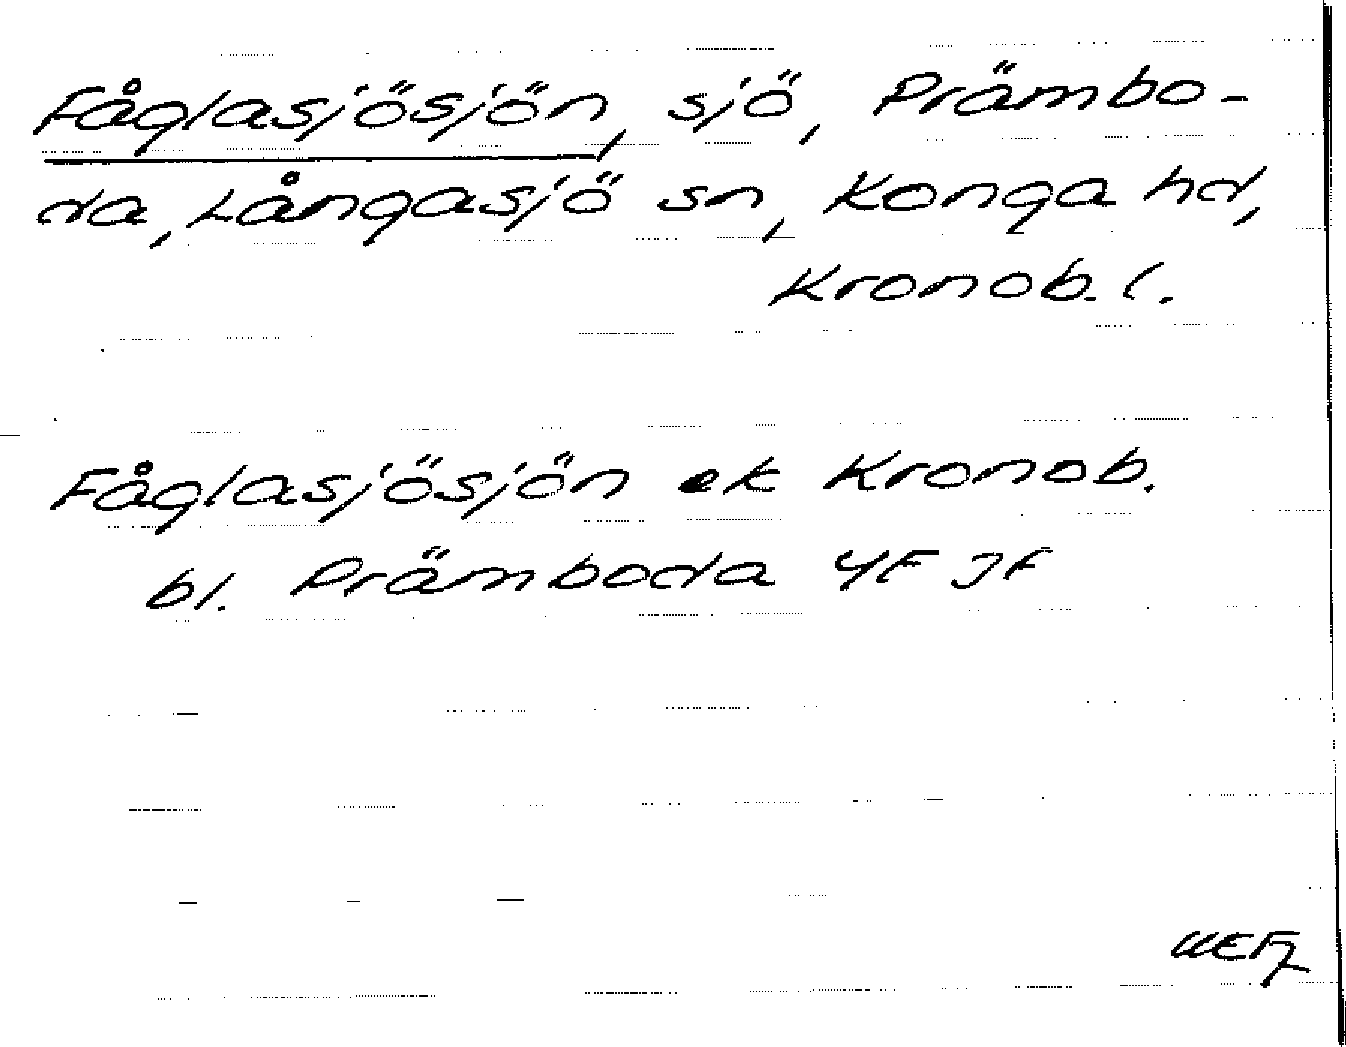 Fåglasjösjön, sjö, Prämbo-
da, Långasjö sn, Konga hd,
Kronob. l.
Fåglasjösjön ek Kronob.
bl. Prämboda 4F JF